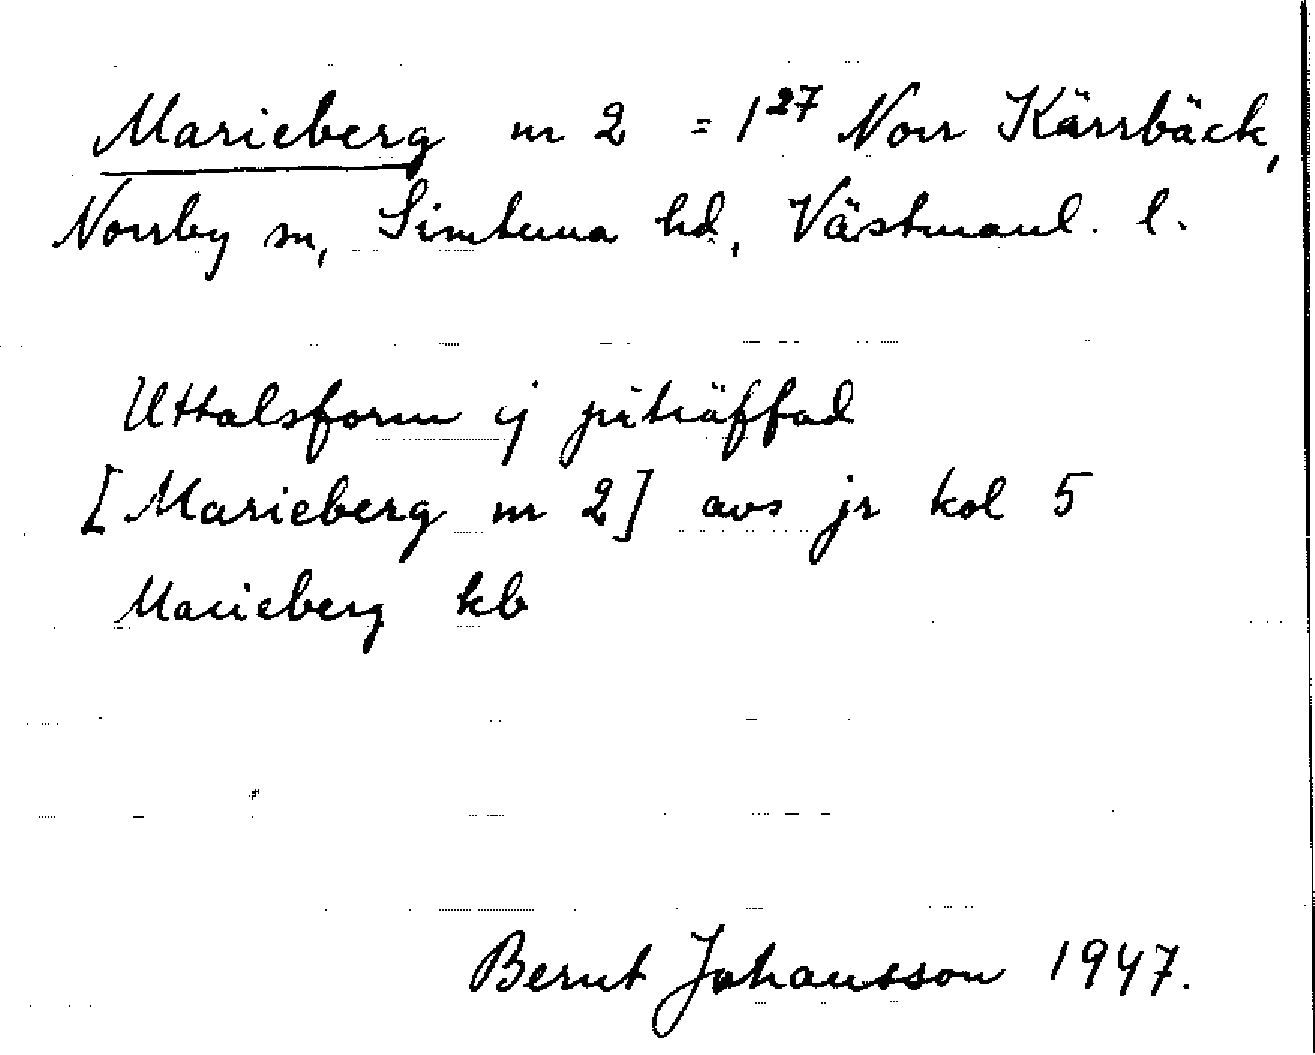 Marieberg nr 2 = 1²⁷ Norr Kärrbäck,
Norrby sn, Simtuna hd, Västmanl. l.
Uttalsform ej påträffad
[Marieberg nr 2] avs jr kol 5
Marieberg kb
Bernt Johansson 1947.